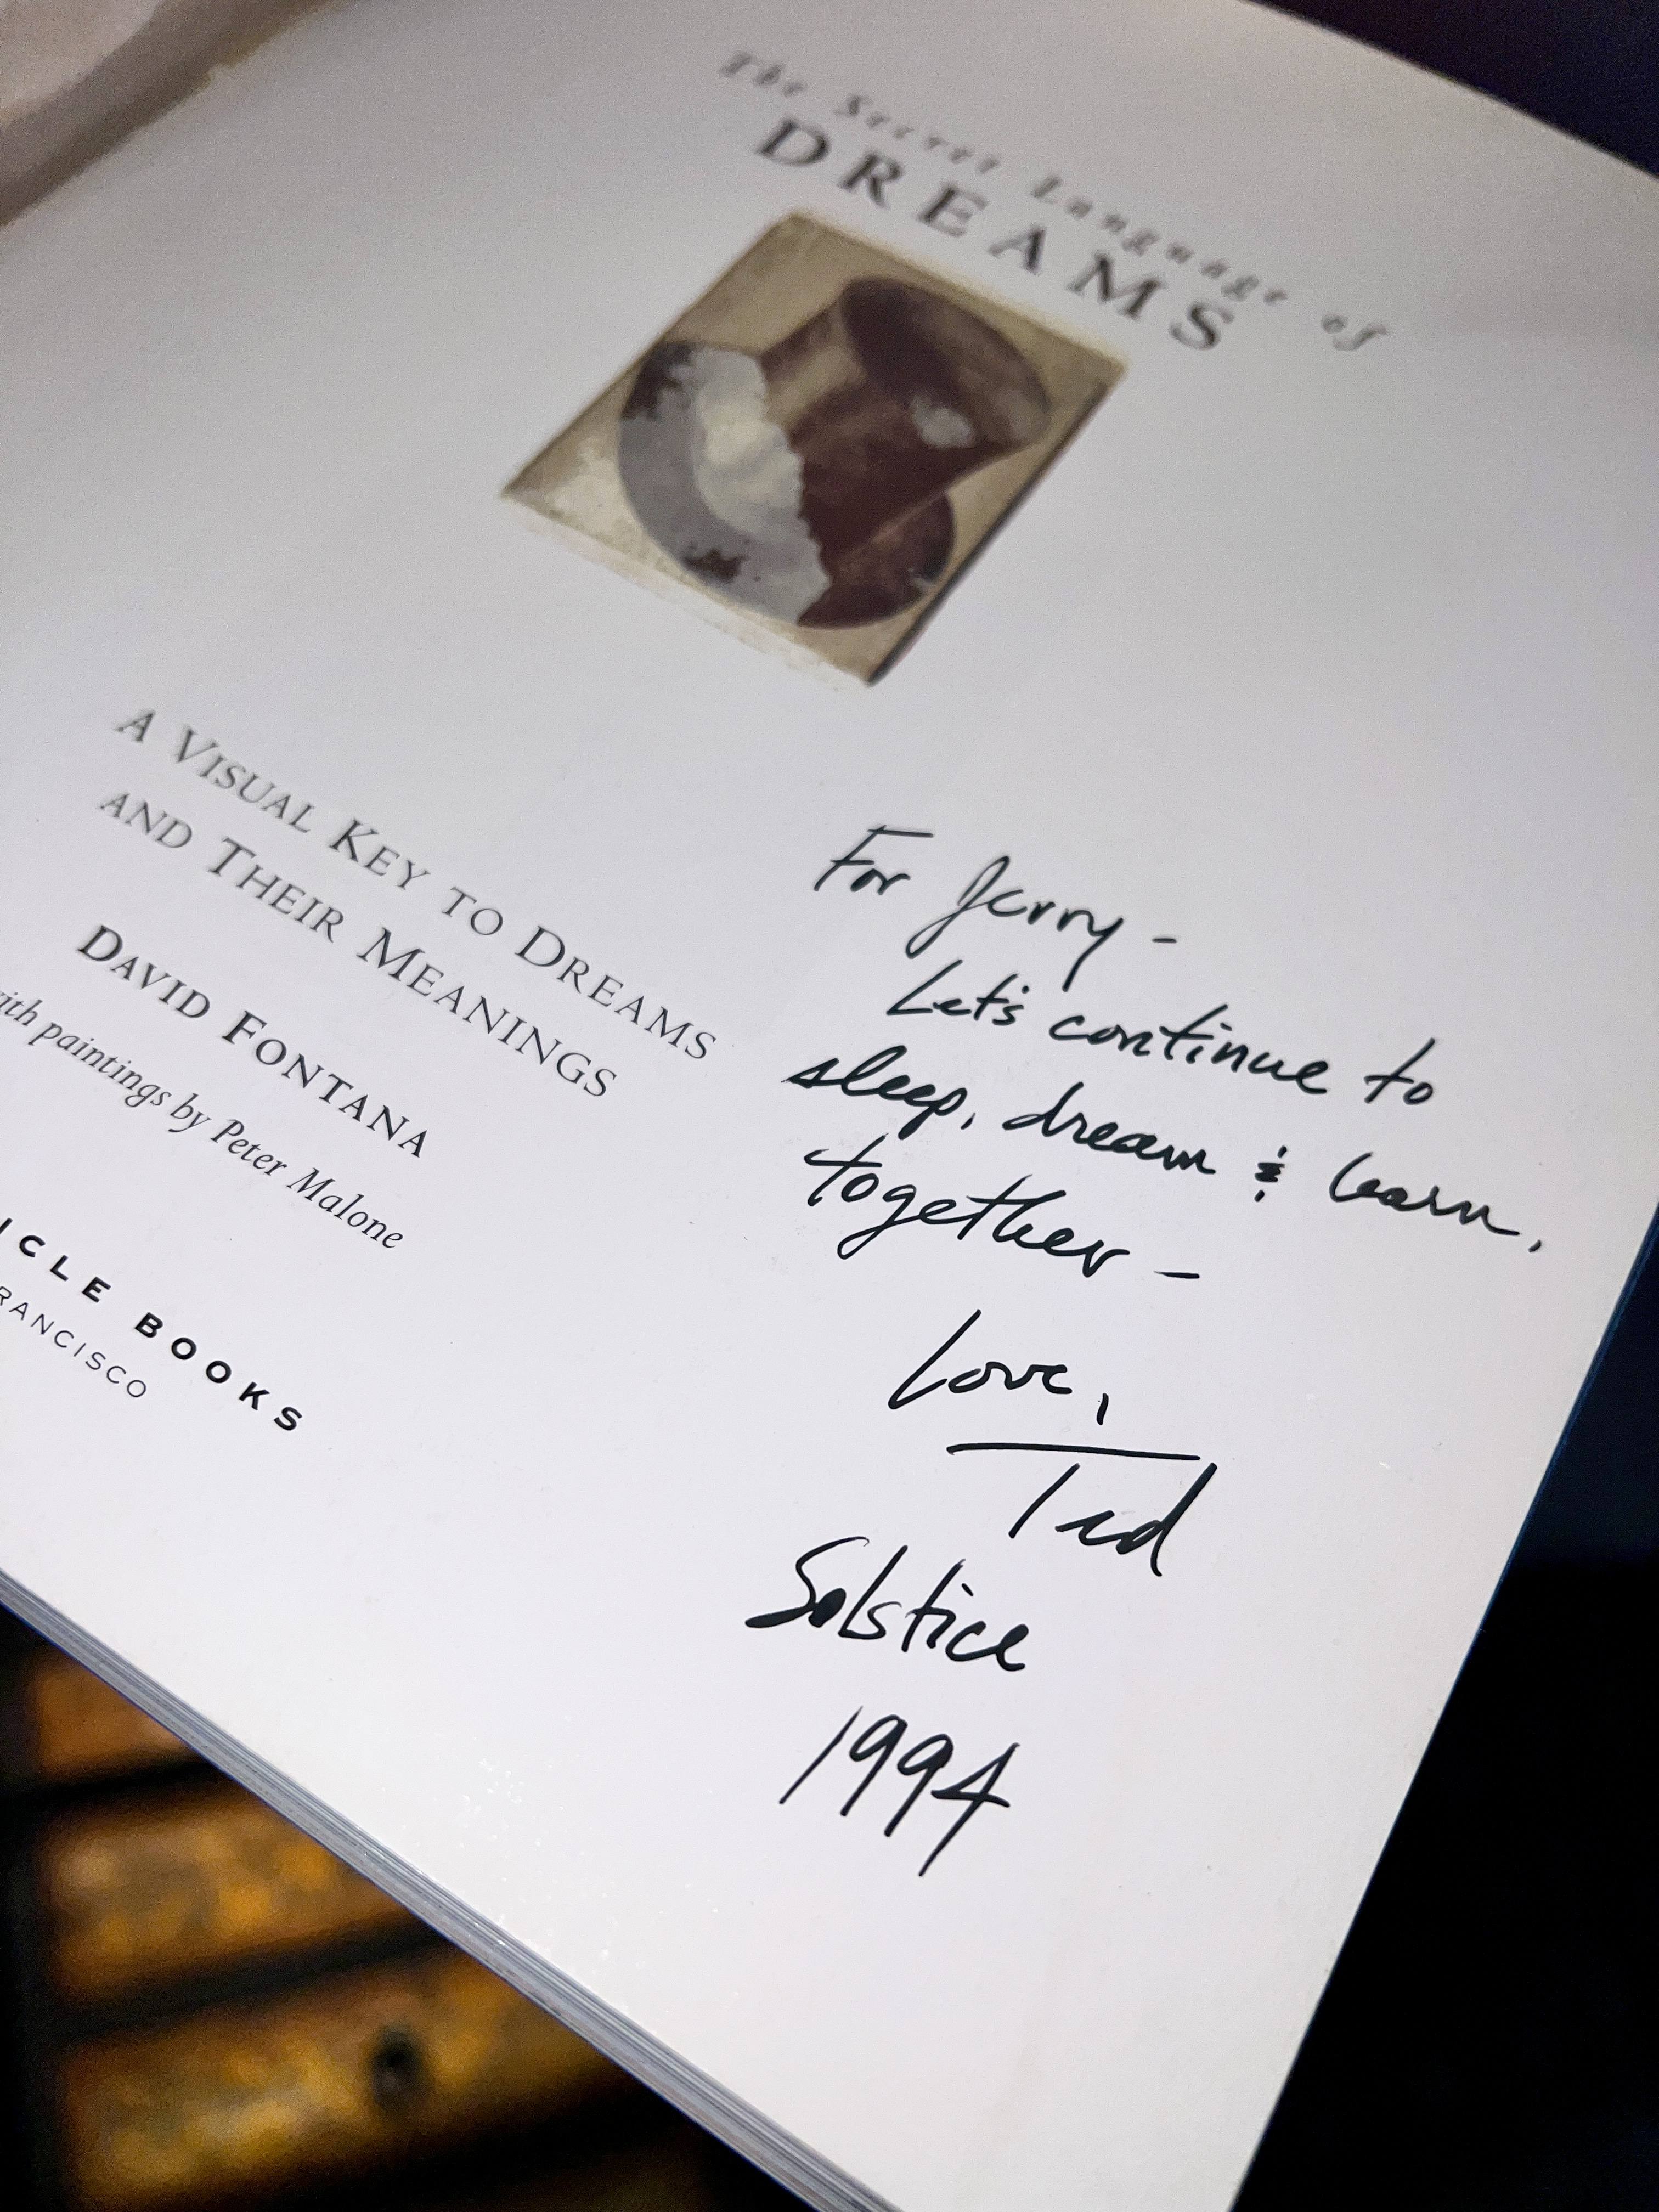 The Secret Language of
DREAMS
A VISUAL KEY TO DREAMS
AND THEIR MEANINGS
DAVID FONTANA
with paintings by Peter Malone
ICLE BOOKS
RANCISCO
For Jerry -
Let's continue to
sleep, dream & learn,
together -
Love,
Ted
Solstice
1994